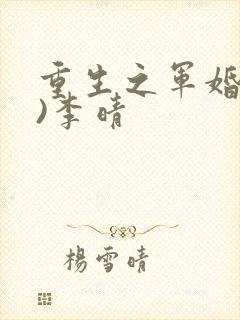 重生之军婚
)李晴
杨雪晴